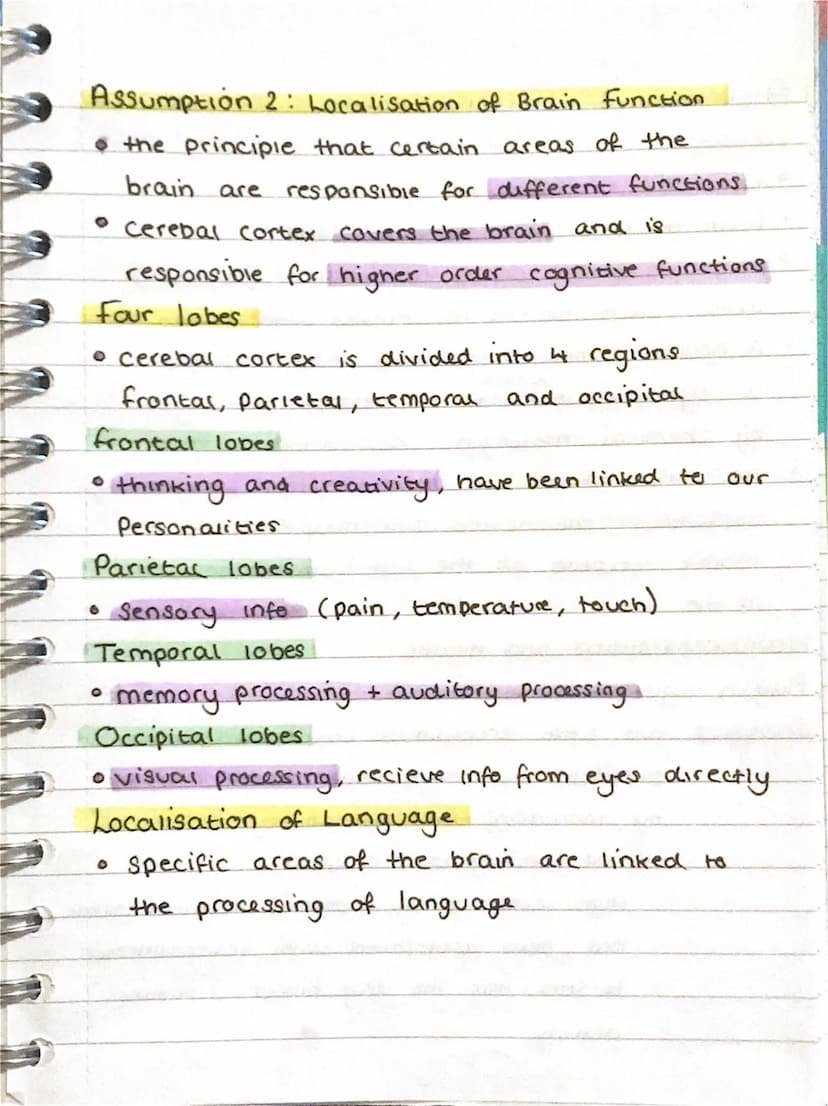 Assumption 2: Localisation of Brain Function
• the principle that certain areas of the
brain are responsible for different functions
• cerebal cortex covers the brain and is
responsible for higher order cognitive functions
Four lobes
• cerebal cortex is divided into 4 regions
frontal, parietal, temporal and occipital
frontal lobes
• thinking and creativity, have been linked to our
Personalities
Parietal lobes
• sensory info (pain, temperature, touch)
Temporal lobes
• memory processing + auditory processing
Occipital lobes
• visual processing, recieve info from eyes directly
Localisation of Language
• specific areas of the brain are linked to
the processing of language